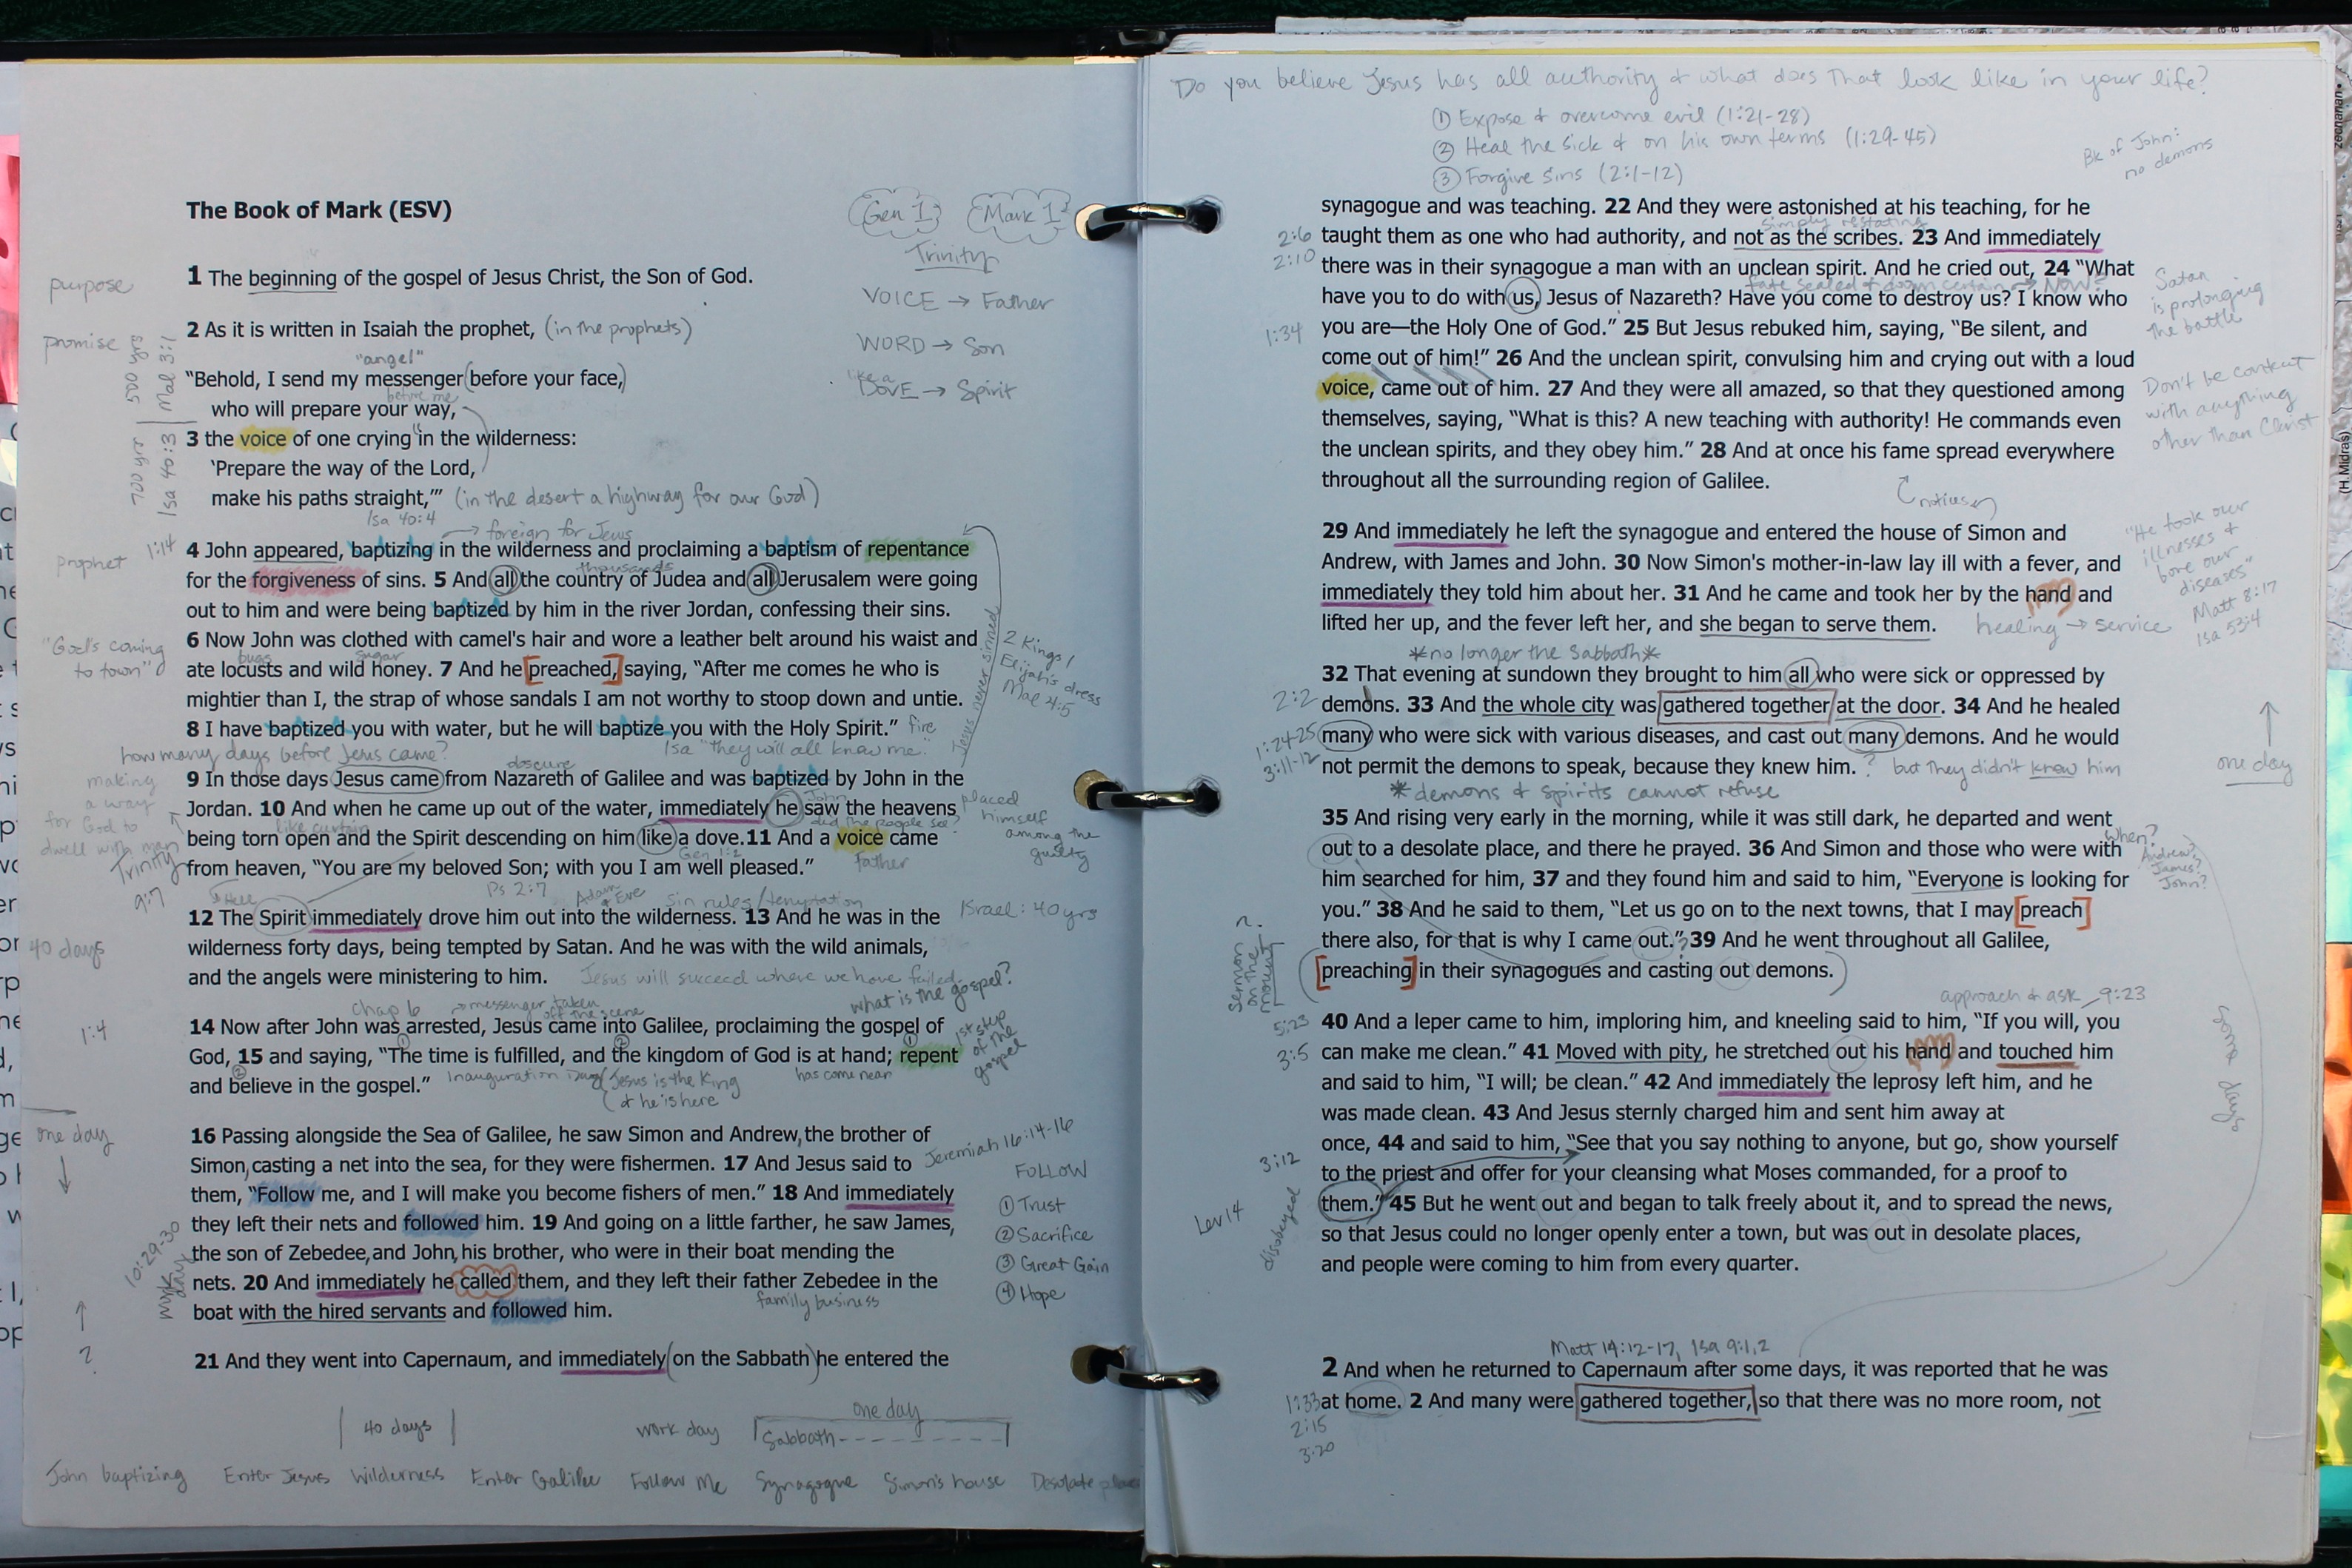 The Book of Mark (ESV)
Gen 1
Mark 1
Trinity
VOICE → Father
WORD → Son
like a
DOVE → Spirit
purpose
1 The beginning of the gospel of Jesus Christ, the Son of God.
promise
2 As it is written in Isaiah the prophet, (in the prophets)
500 yrs | Mal 3:1
700 yrs | Isa 40:3
"angel"
“Behold, I send my messenger (before your face,)
before me
who will prepare your way,
3 the voice of one crying in the wilderness:
‘Prepare the way of the Lord,
make his paths straight,’” (in the desert a highway for our God)
Isa 40:4
→ foreign for Jews
prophet
1:14
4 John appeared, baptizing in the wilderness and proclaiming a baptism of repentance
thousands
for the forgiveness of sins. 5 And all the country of Judea and all Jerusalem were going
out to him and were being baptized by him in the river Jordan, confessing their sins.
"God's coming
to town"
6 Now John was clothed with camel's hair and wore a leather belt around his waist and
bugs
sugar
ate locusts and wild honey. 7 And he [preached,] saying, “After me comes he who is
mightier than I, the strap of whose sandals I am not worthy to stoop down and untie.
8 I have baptized you with water, but he will baptize you with the Holy Spirit.” fire
Jesus never sinned
2 Kings 1
Elijah's dress
Mal 4:5
how many days before Jesus came?
Isa "they will all know me."
obscure
9 In those days Jesus came from Nazareth of Galilee and was baptized by John in the
John
Jordan. 10 And when he came up out of the water, immediately he saw the heavens
like curtain
did the people see?
being torn open and the Spirit descending on him like a dove. 11 And a voice came
Gen 1:2
Father
from heaven, “You are my beloved Son; with you I am well pleased.”
making
a way
for God to
dwell with man
Trinity
9:7
placed
himself
among the
guilty
Ps 2:7
Adam
& Eve
Sin rules/temptation
12 The Spirit immediately drove him out into the wilderness. 13 And he was in the
Israel: 40 yrs
40 days
wilderness forty days, being tempted by Satan. And he was with the wild animals,
and the angels were ministering to him. Jesus will succeed where we have failed
Chap 6
→ messenger taken
off the scene
what is the gospel?
14 Now after John was arrested, Jesus came into Galilee, proclaiming the gospel of
1:4
God, 15 and saying, “The time is fulfilled, and the kingdom of God is at hand; repent
1st step
of the
gospel
and believe in the gospel.” Inauguration Day
Jesus is the King
& he is here
has come near
one day
16 Passing alongside the Sea of Galilee, he saw Simon and Andrew, the brother of
Jeremiah 16:14-16
Simon, casting a net into the sea, for they were fishermen. 17 And Jesus said to
them, “Follow me, and I will make you become fishers of men.” 18 And immediately
they left their nets and followed him. 19 And going on a little farther, he saw James,
the son of Zebedee, and John, his brother, who were in their boat mending the
nets. 20 And immediately he called them, and they left their father Zebedee in the
family business
boat with the hired servants and followed him.
FOLLOW
① Trust
② Sacrifice
③ Great Gain
④ Hope
10:29-30
work day
?
21 And they went into Capernaum, and immediately (on the Sabbath) he entered the
40 days
work day
one day
Sabbath
John baptizing
Enter Jesus
Wilderness
Enter Galilee
Follow Me
Synagogue
Simon's house
Desolate
Do you believe Jesus has all authority & what does that look like in your life?
① Expose & overcome evil (1:21-28)
② Heal the sick & on his own terms (1:29-45)
③ Forgive sins (2:1-12)
Bk of John:
no demons
synagogue and was teaching. 22 And they were astonished at his teaching, for he
simply restating
2:6
2:10
taught them as one who had authority, and not as the scribes. 23 And immediately
there was in their synagogue a man with an unclean spirit. And he cried out, 24 “What
fate sealed & doom certain → Now?
have you to do with us, Jesus of Nazareth? Have you come to destroy us? I know who
Satan
is prolonging
the battle
1:34
you are—the Holy One of God.” 25 But Jesus rebuked him, saying, “Be silent, and
come out of him!” 26 And the unclean spirit, convulsing him and crying out with a loud
voice, came out of him. 27 And they were all amazed, so that they questioned among
themselves, saying, “What is this? A new teaching with authority! He commands even
the unclean spirits, and they obey him.” 28 And at once his fame spread everywhere
throughout all the surrounding region of Galilee.
Don't be content
with anything
other than Christ
notices
29 And immediately he left the synagogue and entered the house of Simon and
Andrew, with James and John. 30 Now Simon's mother-in-law lay ill with a fever, and
immediately they told him about her. 31 And he came and took her by the hand and
lifted her up, and the fever left her, and she began to serve them.
healing → service
"He took our
illnesses &
bore our
diseases"
Matt 8:17
Isa 53:4
*no longer the Sabbath*
32 That evening at sundown they brought to him all who were sick or oppressed by
2:2
demons. 33 And the whole city was gathered together at the door. 34 And he healed
1:24-25
3:11-12
many who were sick with various diseases, and cast out many demons. And he would
not permit the demons to speak, because they knew him. ? but they didn't know him
one day
*demons & spirits cannot refuse
35 And rising very early in the morning, while it was still dark, he departed and went
When?
out to a desolate place, and there he prayed. 36 And Simon and those who were with
Andrew?
James?
John?
him searched for him, 37 and they found him and said to him, “Everyone is looking for
you.” 38 And he said to them, “Let us go on to the next towns, that I may [preach]
there also, for that is why I came out.”? 39 And he went throughout all Galilee,
([preaching] in their synagogues and casting out demons.)
Sermon
on the
mount
?
approach & ask 9:23
5:23
40 And a leper came to him, imploring him, and kneeling said to him, “If you will, you
3:5
can make me clean.” 41 Moved with pity, he stretched out his hand and touched him
and said to him, “I will; be clean.” 42 And immediately the leprosy left him, and he
was made clean. 43 And Jesus sternly charged him and sent him away at
once, 44 and said to him, “See that you say nothing to anyone, but go, show yourself
3:12
to the priest and offer for your cleansing what Moses commanded, for a proof to
Lev 14
disobeyed
them.” 45 But he went out and began to talk freely about it, and to spread the news,
so that Jesus could no longer openly enter a town, but was out in desolate places,
and people were coming to him from every quarter.
some days
Matt 14:12-17, Isa 9:1,2
2 And when he returned to Capernaum after some days, it was reported that he was
1:33
2:15
3:20
at home. 2 And many were gathered together, so that there was no more room, not
(H.Midras)